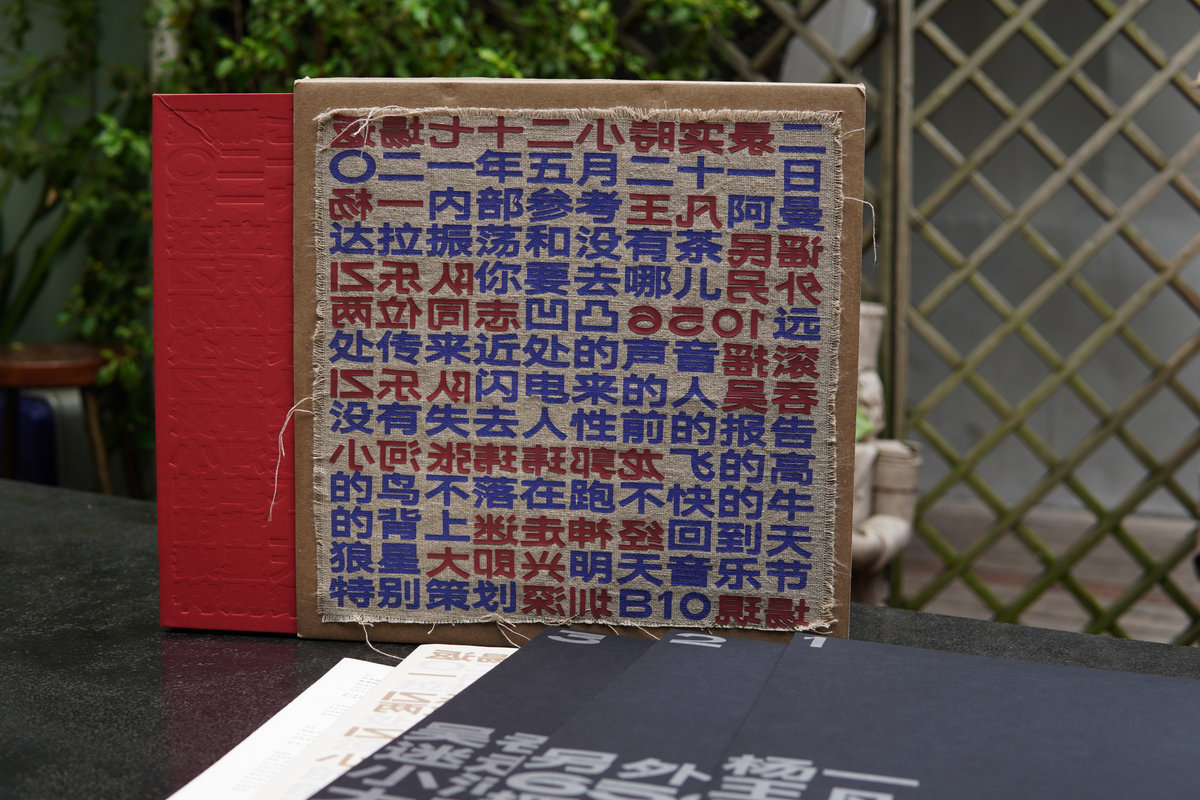 場七十二小時实二
〇二一年五月二十一日
杨一内部参考王凡阿曼
达拉振荡和没有茶民谣
IZ乐队你要去哪儿另外
两位同志凹凸6501远
处传来近处的声音摇滚
IZ乐队闪电来的人吴吞
没有失去人性前的报告
小河张玮玮郭龙飞的高
的鸟不落在跑不快的牛
的背上迷走神经回到天
狼星大即兴明天音乐节
特别策划深圳B10現場
3 2 1
吴 另外 杨一
迷 65 王
小